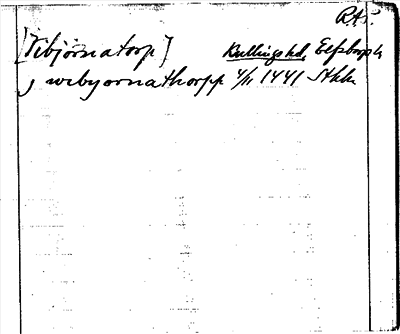 R.A.P.
[Vibjörnatorp] Kullings hd, Elfsborgs l.
j wibyornathorpp 4/11 1441 Sthlm